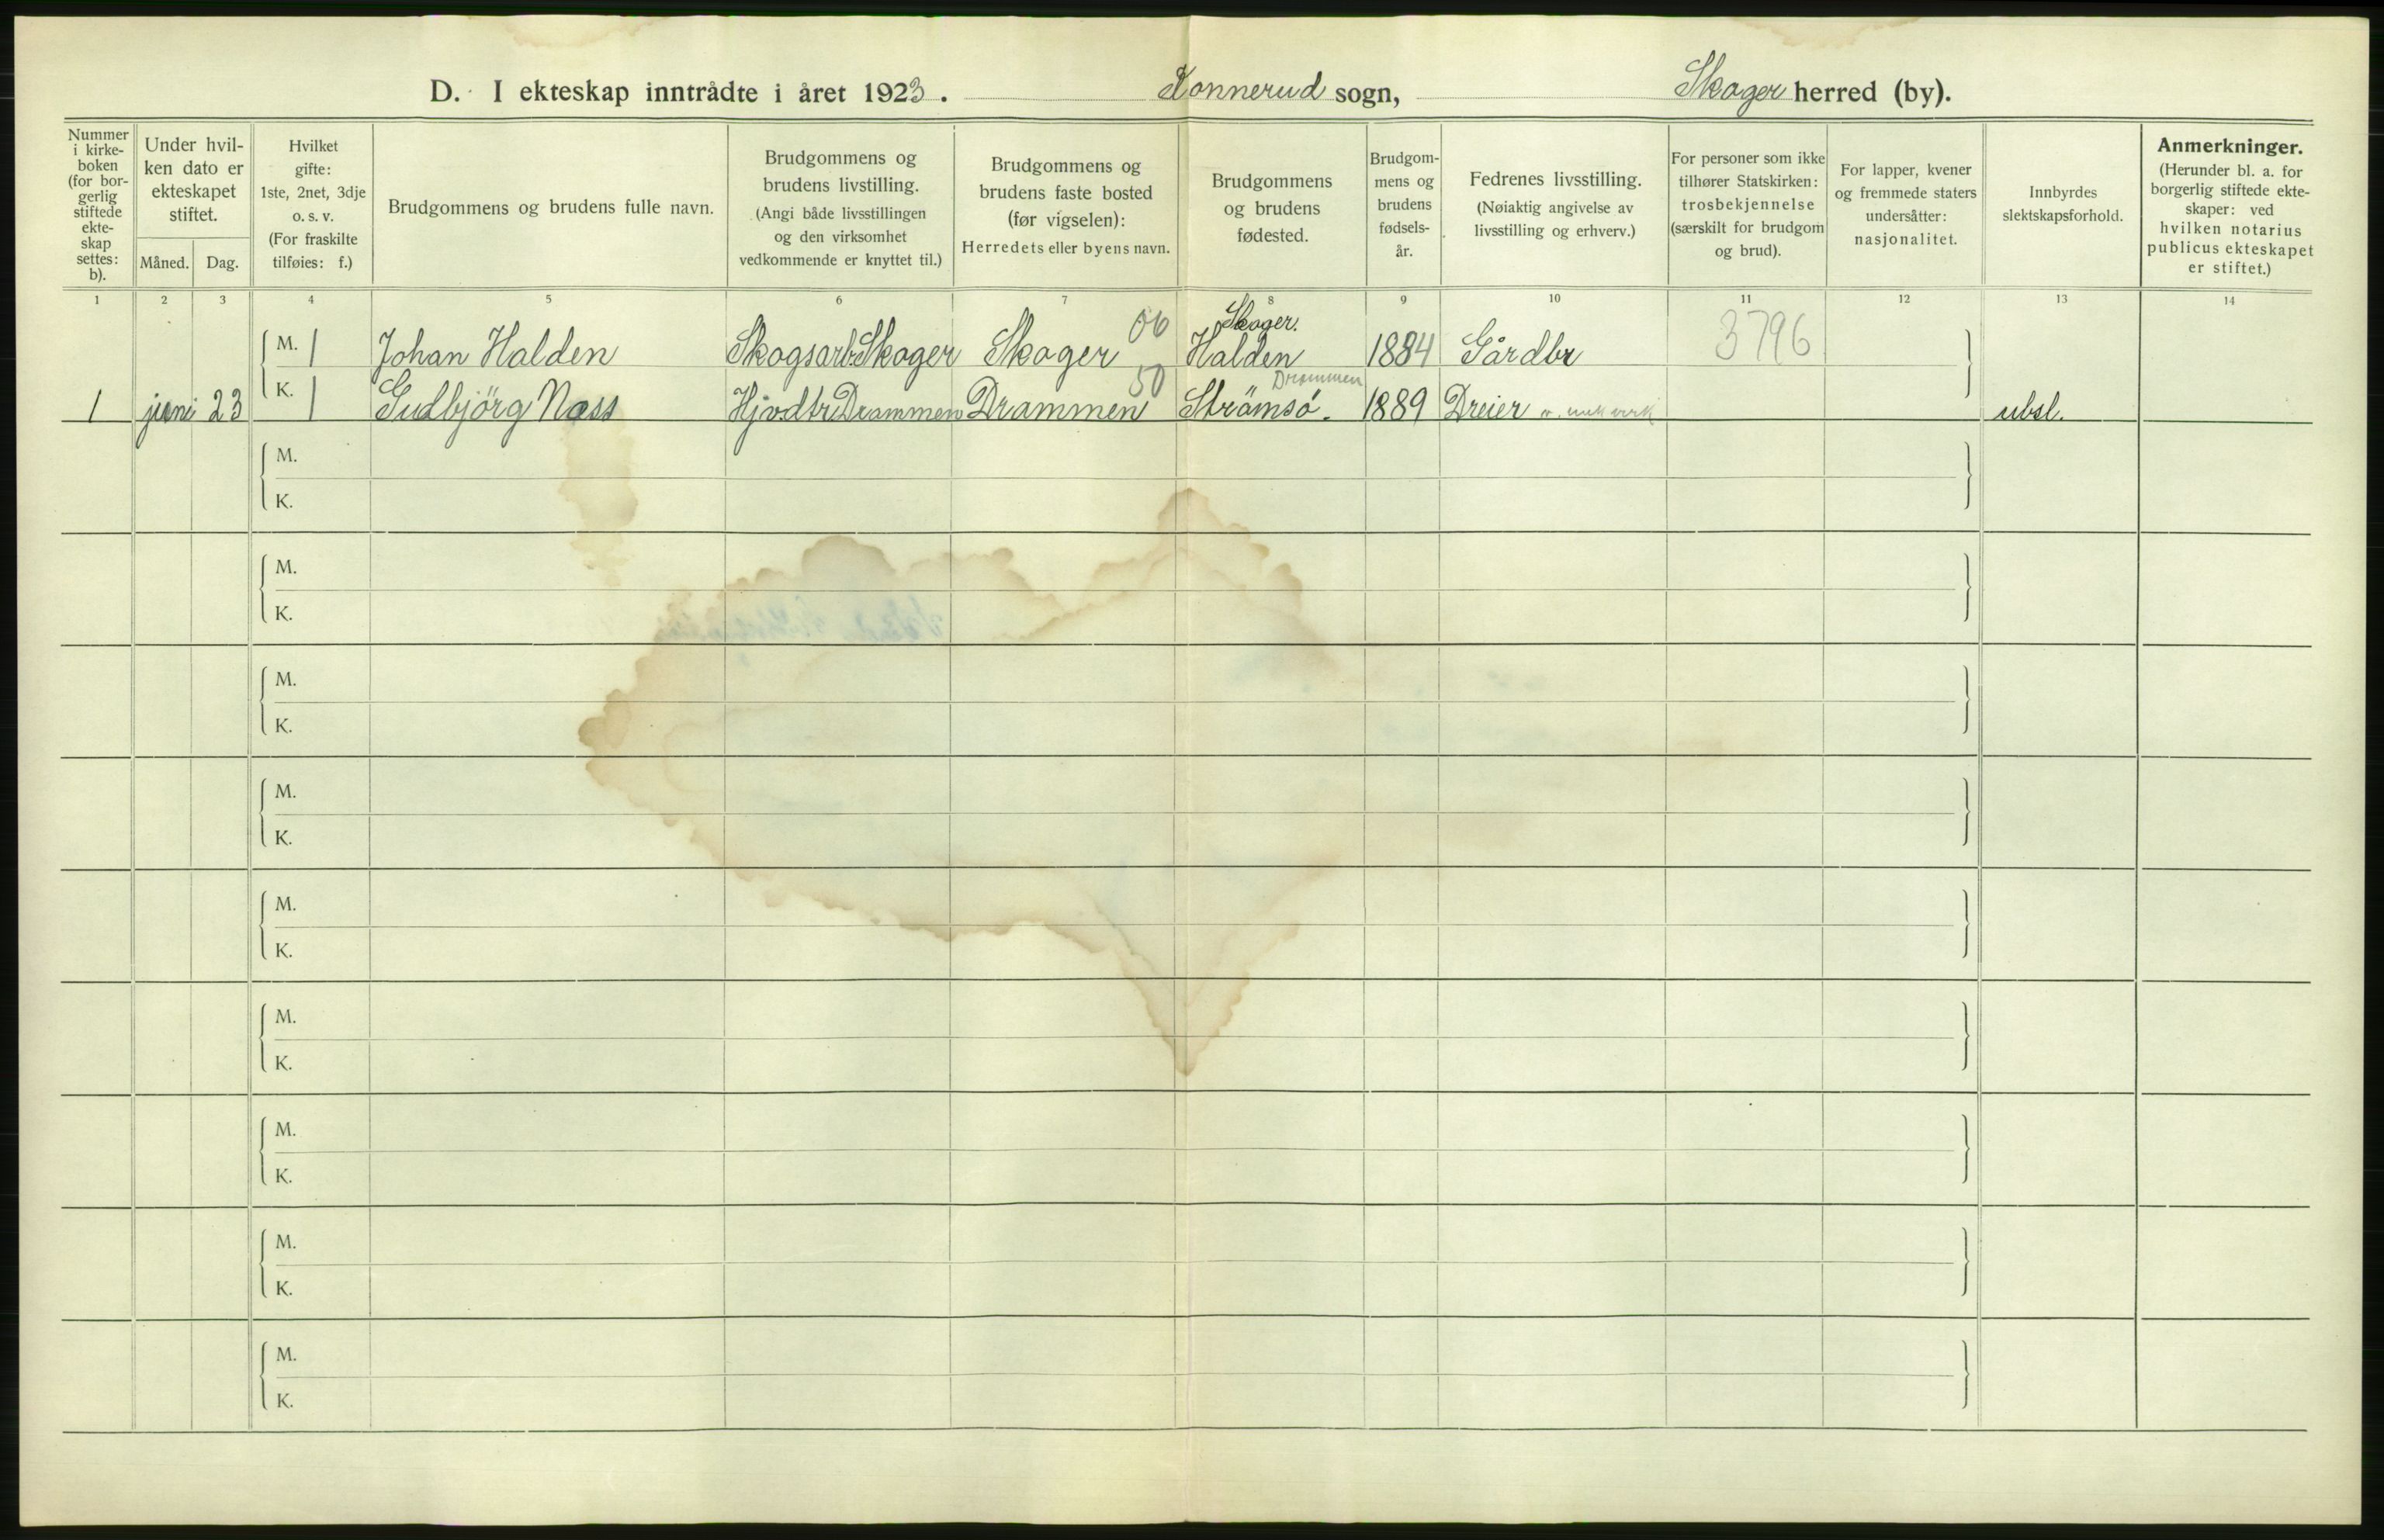 D. I ekteskap inntrådte i året 1923. Konnerud sogn, Skoger herred (by).
Nummer
i kirke-
boken
(for bor-
gerlig
stiftede
ekte-
skap
settes:
b).
Under hvil-
ken dato er
ekteskapet
stiftet.
Måned.
Dag.
Hvilket
gifte:
1ste, 2net, 3dje
o. s. v.
(For fraskilte
tilføies: f.)
Brudgommens og brudens fulle navn.
Brudgommens og
brudens livstilling.
(Angi både livsstillingen
og den virksomhet
vedkommende er knyttet til.)
Brudgommens og
brudens faste bosted
(før vigselen):
Herredets eller byens navn.
Brudgommens
og brudens
fødested.
Brudgom-
mens og
brudens
fødsels-
år.
Fedrenes livsstilling.
(Nøiaktig angivelse av
livsstilling og erhverv.)
For personer som ikke
tilhører Statskirken:
trosbekjennelse
(særskilt for brudgom
og brud).
For lapper, kvener
og fremmede staters
undersåtter:
nasjonalitet.
Innbyrdes
slektskapsforhold.
Anmerkninger.
(Herunder bl. a. for
borgerlig stiftede ekte-
skaper: ved
hvilken notarius
publicus ekteskapet
er stiftet.)
1 2 3 4 5 6 7 8 9 10 11 12 13 14
06 Skoger.
M. 1 Johan Halden Skogsarb. Skoger Skoger Halden 1884 Gårdbr 3796
50 Drammen
1 juni 23 K. 1 Gudbjörg Næss Hjvdtr Drammen Drammen Strömsö. 1889 Dreier ubsl.
M.
K.
M.
K.
M.
K.
M.
K.
M.
K.
M.
K.
M.
K.
M.
K.
M.
K.